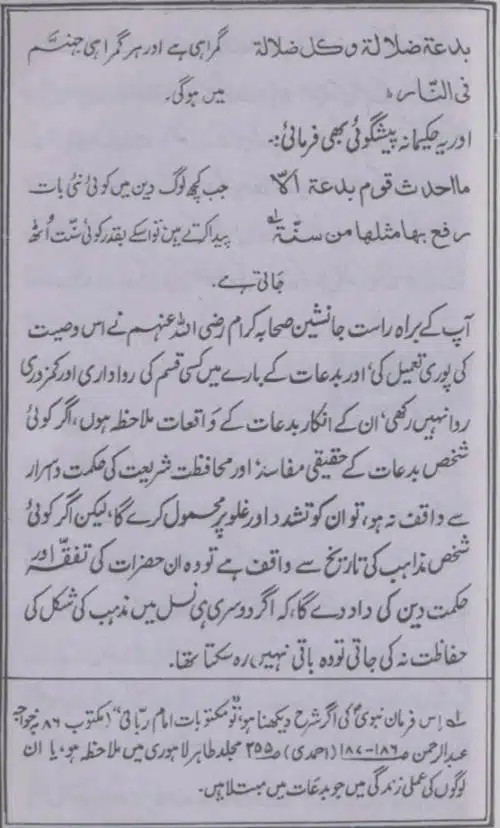 بدعة ضلالة وكل ضلالة گمراہی ہے اور ہر گمراہی جہنّم
فی النّار، میں ہوگی۔
اور یہ حکیمانہ پیشگوئی بھی فرمائی:۔
ما احدث قوم بدعة الاّ جب کچھ لوگ دین میں کوئی نئی بات
رفع بها مثلها من سنّة لہ پیدا کرتے ہیں تو اسکے بقدر کوئی سنّت اُٹھ
جاتی ہے۔
آپ کے براہ راست جانشین صحابہ کرام رضی اللہ عنہم نے اس وصیت
کی پوری تعمیل کی، اور بدعات کے بارے میں کسی قسم کی رواداری اور کمزوری
روا نہیں رکھی، ان کے انکار بدعات کے واقعات ملاحظہ ہوں، اگر کوئی
شخص بدعات کے حقیقی مفاسد، اور محافظت شریعت کی حکمت و اسرار
سے واقف نہ ہو، تو ان کو تشدد اور غلو پر محمول کرے گا، لیکن اگر کوئی
شخص مذاہب کی تاریخ سے واقف ہے تو وہ ان حضرات کی تفقّہ اور
حکمت دین کی داد دے گا، کہ اگر دوسری ہی نسل میں مذہب کی شکل کی
حفاظت نہ کی جاتی تو وہ باقی نہیں رہ سکتا تھا۔
لہ اِس فرمان نبوی کی اگر شرح دیکھنا ہو، تو "مکتوبات امام ربّانی" (مکتوب ۱۸۶ بخواجہ
عبدالرحمن صـ ۱۸۶-۱۸۷ (احمدی) صـ ۲۵۵ مجلد طاہر لاہوری میں ملاحظہ ہو، یا ان
لوگوں کی عملی زندگی میں جو بدعات میں مبتلا ہیں۔